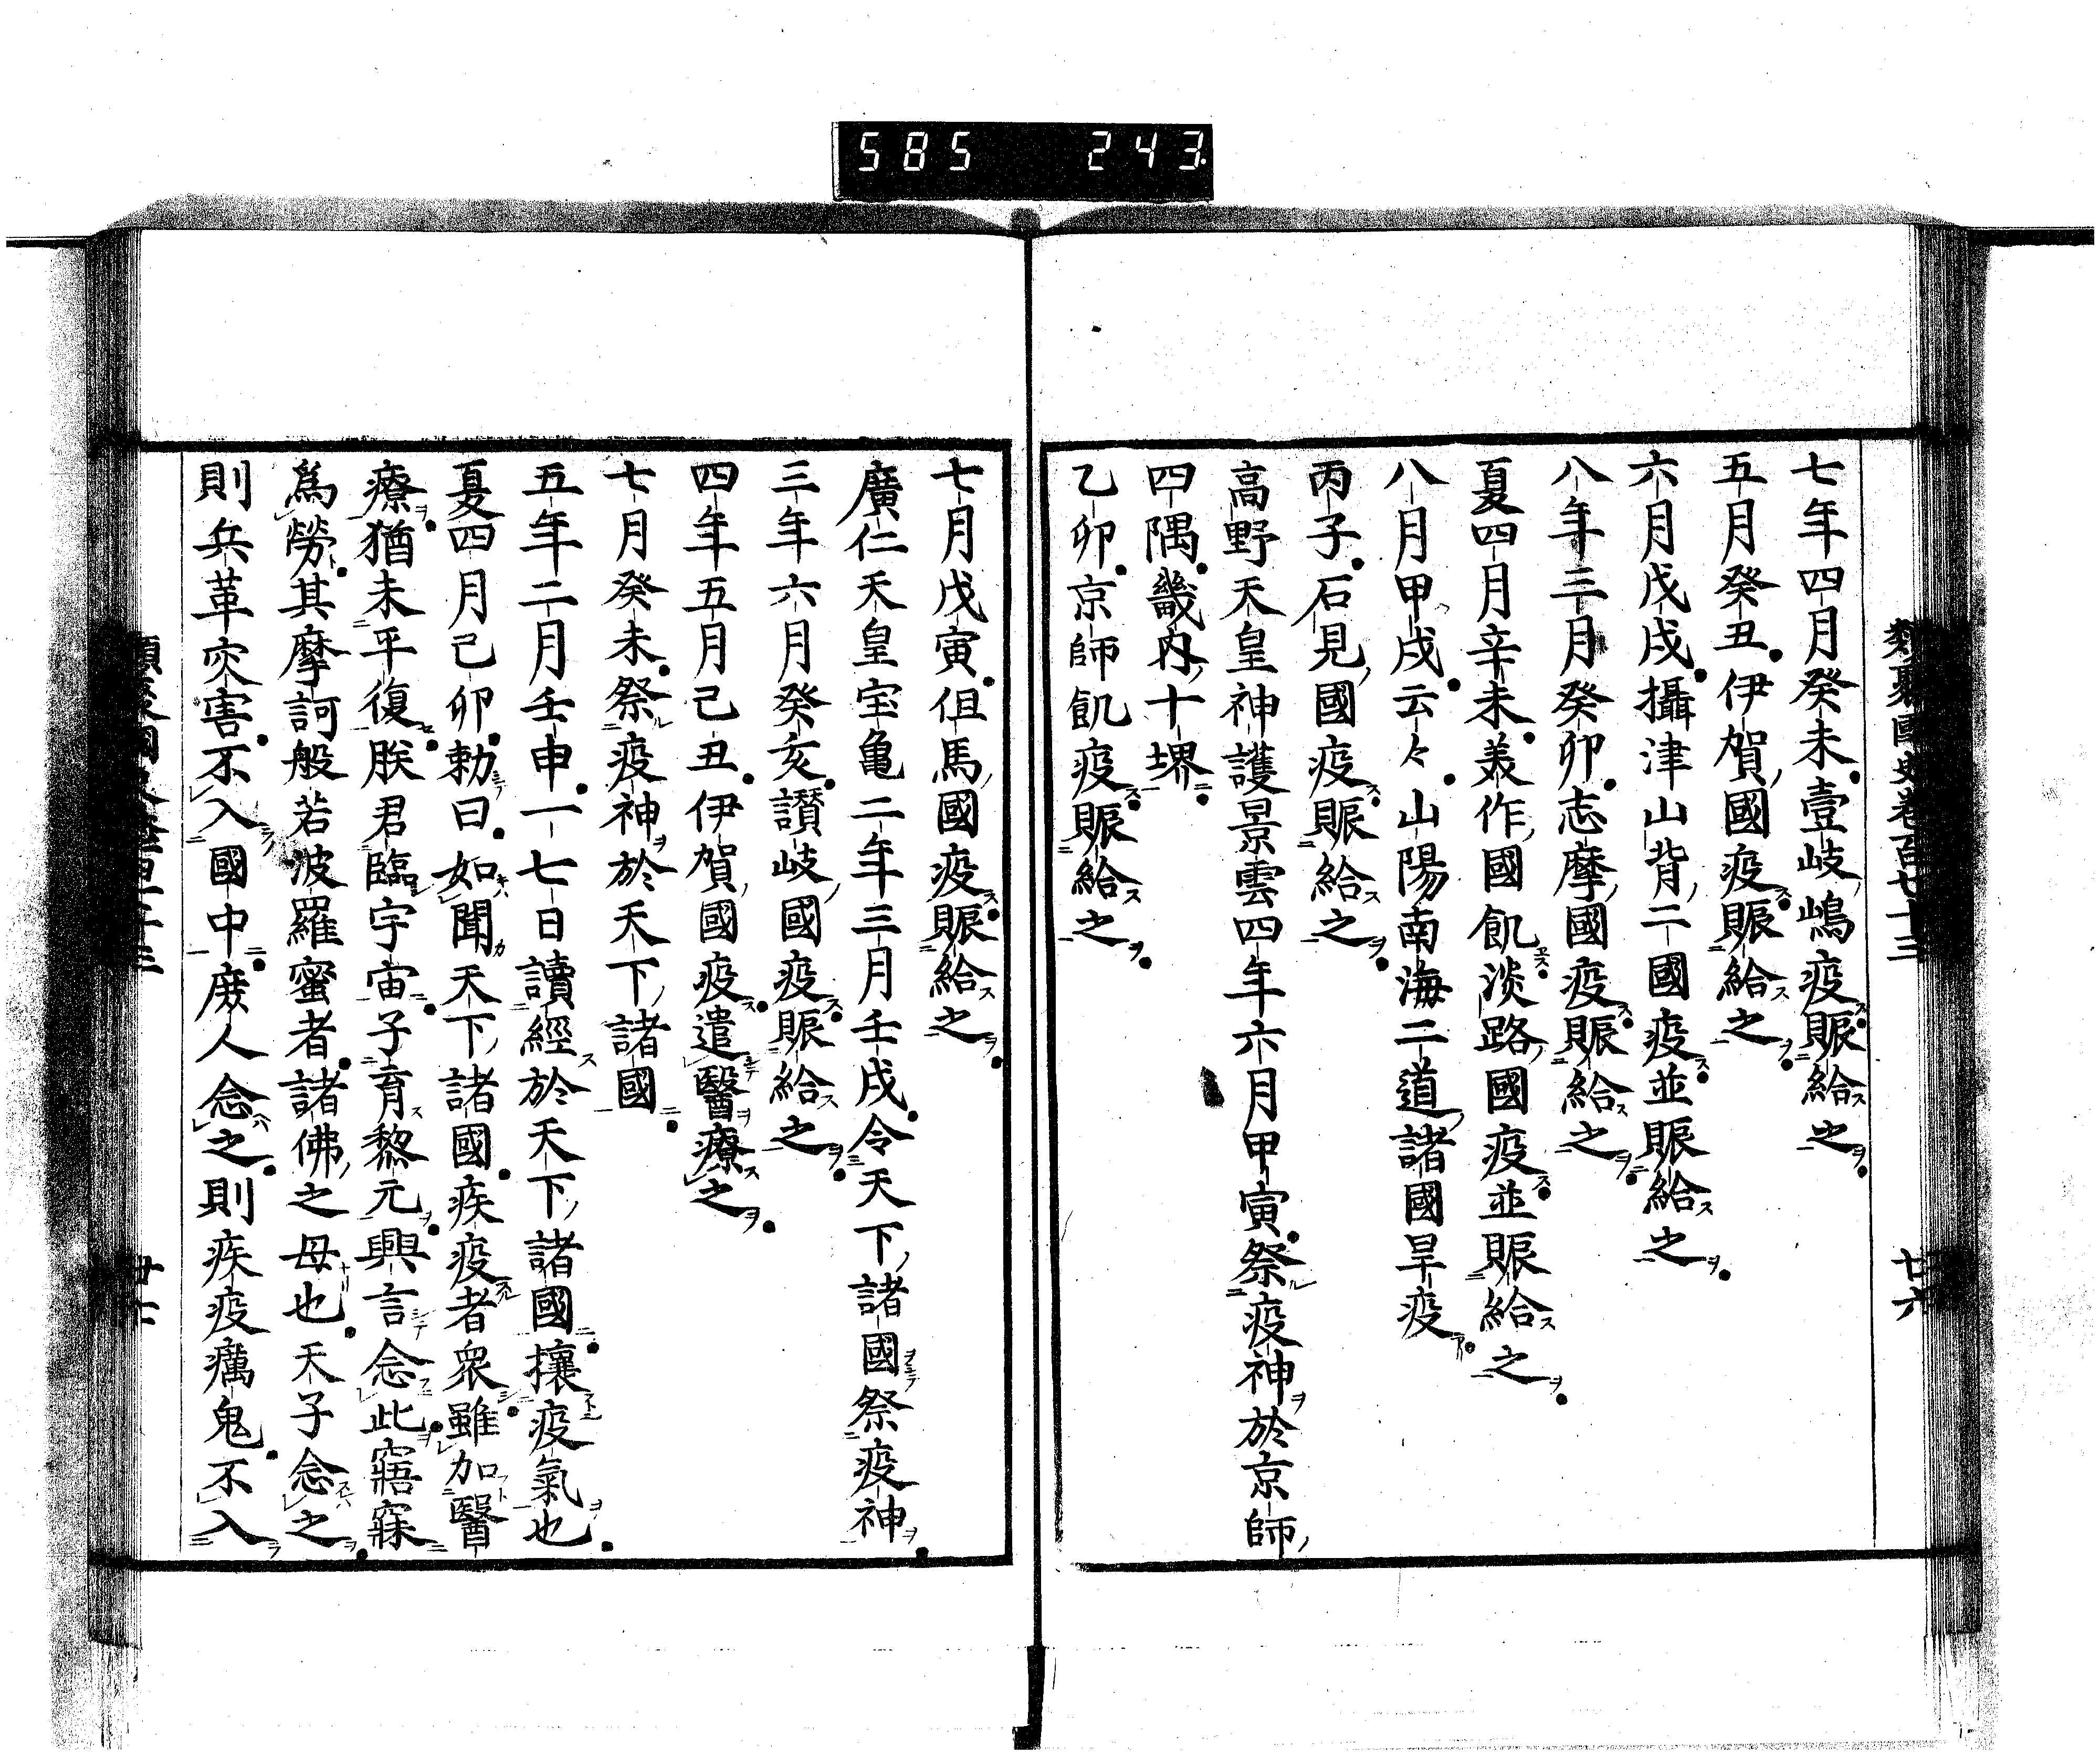 585 243
類聚國史卷百七十三 廿六
七年四月癸未壹岐嶋疫賑給之
五月癸丑伊賀國疫賑給之
六月戊戌攝津山背二國疫並賑給之
八年三月癸卯志摩國疫賑給之
夏四月辛未美作國飢淡路國疫並賑給之
八月甲戌云々山陽南海二道諸國旱疫
丙子石見國疫賑給之
高野天皇神護景雲四年六月甲寅祭疫神於京師
四隅畿内十堺
乙卯京師飢疫賑給之
七月戊寅伹馬國疫賑給之
廣仁天皇宝亀二年三月壬戌令天下諸國祭疫神
三年六月癸亥讃岐國疫賑給之
四年五月己丑伊賀國疫遣醫療之
七月癸未祭疫神於天下諸國
五年二月壬申一七日讀經於天下諸國攘疫氣也
夏四月己卯勅曰如聞天下諸國疾疫者衆雖加醫
療猶未平復朕君臨宇宙子育黎元興言念此寤寐
爲勞其摩訶般若波羅蜜者諸佛之母也天子念之
則兵革灾害不入國中庶人念之則疾疫癘鬼不入